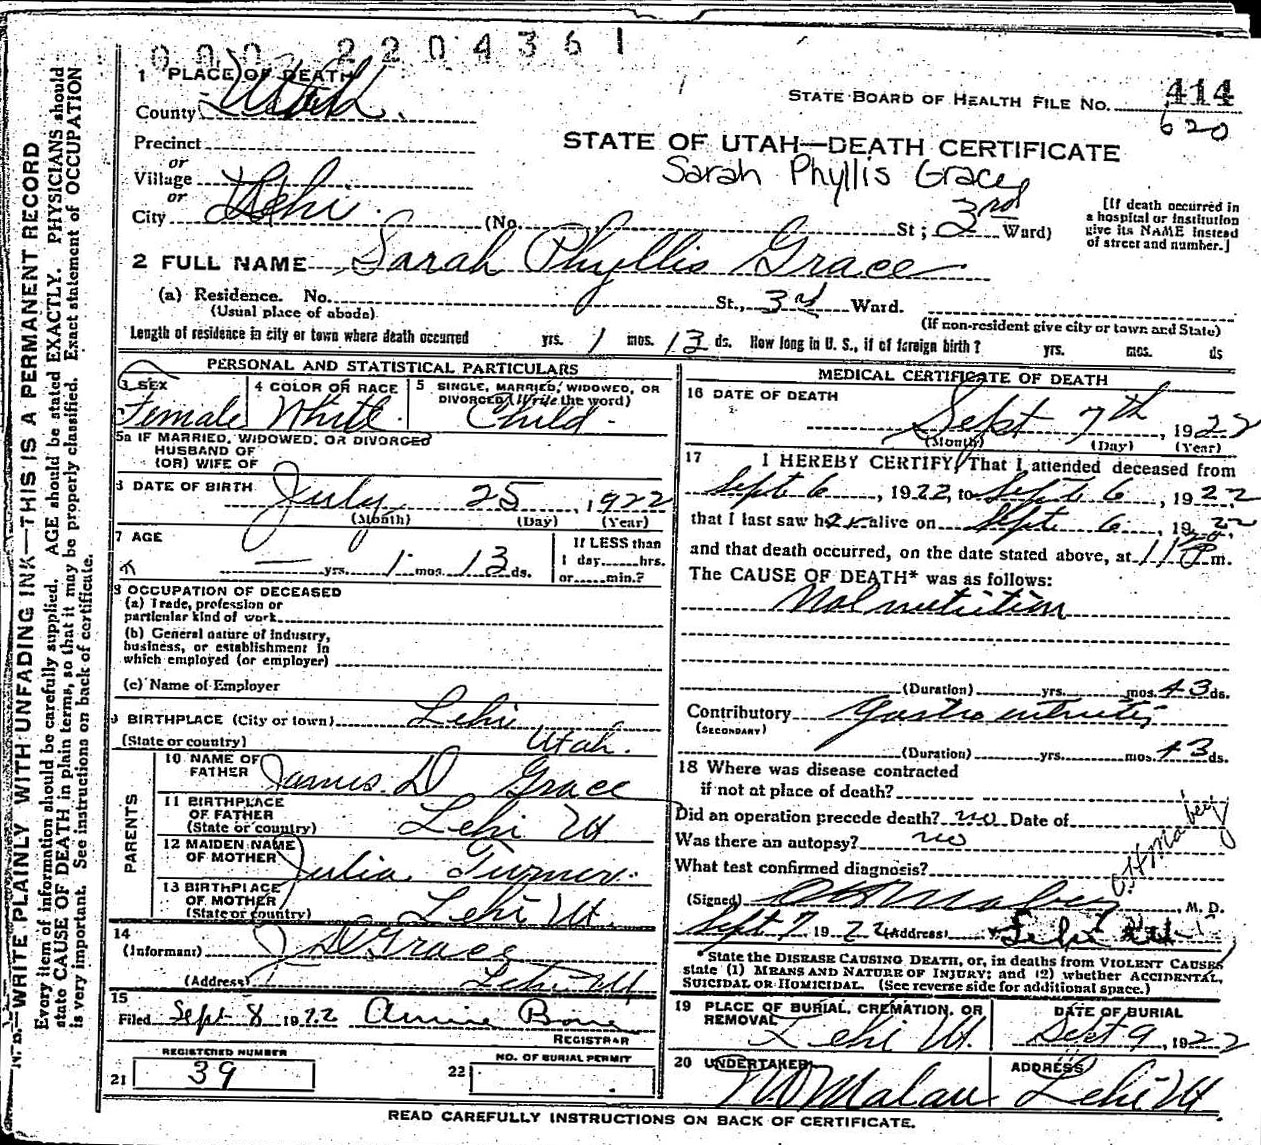 000 2204361
1 PLACE OF DEATH
County Utah
STATE BOARD OF HEALTH FILE NO. 414
620
Precinct
STATE OF UTAH—DEATH CERTIFICATE
or
Village
Sarah Phyllis Grace
or
City Lehi (No. St; 3rd Ward)
[If death occurred in
a hospital or institution
give its NAME instead
of street and number.]
2 FULL NAME Sarah Phyllis Grace
(a) Residence. No. St., 3rd Ward.
(Usual place of abode)
(If non-resident give city or town and State)
Length of residence in city or town where death occurred yrs. 1 mos. 13 ds. How long in U. S., if of foreign birth? yrs. mos. ds
PERSONAL AND STATISTICAL PARTICULARS
3 SEX
Female
4 COLOR OR RACE
White
5 SINGLE, MARRIED, WIDOWED, OR
DIVORCED (Write the word)
Child
5a IF MARRIED, WIDOWED, OR DIVORCED
HUSBAND OF
(OR) WIFE OF
DATE OF BIRTH July 25, 1922
(Month) (Day) (Year)
7 AGE
— yrs. 1 mos. 13 ds.
If LESS than
1 day hrs.
or min.?
8 OCCUPATION OF DECEASED
(a) Trade, profession or
particular kind of work
(b) General nature of industry,
business, or establishment in
which employed (or employer)
(c) Name of Employer
9 BIRTHPLACE (City or town) Lehi
(State or country) Utah.
PARENTS
10 NAME OF
FATHER James D Grace
11 BIRTHPLACE
OF FATHER
(State or country) Lehi Ut
12 MAIDEN NAME
OF MOTHER Julia Turner.
13 BIRTHPLACE
OF MOTHER
(State or country) Lehi Ut.
14
(Informant) J D Grace
(Address) Lehi Ut
15
Filed Sept 8 1922 Annie Bone
REGISTRAR
REGISTERED NUMBER
21 39
NO. OF BURIAL PERMIT
22
MEDICAL CERTIFICATE OF DEATH
16 DATE OF DEATH
Sept 7th, 1922
(Month) (Day) (Year)
17 I HEREBY CERTIFY, That I attended deceased from
Sept 6, 1922, to Sept 6, 1922
that I last saw her alive on Sept 6, 1922,
and that death occurred, on the date stated above, at m.
The CAUSE OF DEATH* was as follows:
Malnutrition
(Duration) yrs. mos. 43 ds.
Contributory Gastro enteritis
(SECONDARY)
(Duration) yrs. mos. 43 ds.
18 Where was disease contracted
if not at place of death?
Did an operation precede death? no Date of
Was there an autopsy? no
What test confirmed diagnosis?
(Signed) M. D.
Sept 7 1922 (Address) Lehi Ut
*State the DISEASE CAUSING DEATH, or, in deaths from VIOLENT CAUSES
state (1) MEANS AND NATURE OF INJURY; and (2) whether ACCIDENTAL,
SUICIDAL OR HOMICIDAL. (See reverse side for additional space.)
19 PLACE OF BURIAL, CREMATION, OR
REMOVAL Lehi Ut.
DATE OF BURIAL
Sept 9, 1922
20 UNDERTAKER
ADDRESS
Lehi Ut
READ CAREFULLY INSTRUCTIONS ON BACK OF CERTIFICATE.
N. B.—WRITE PLAINLY WITH UNFADING INK—THIS IS A PERMANENT RECORD
Every item of information should be carefully supplied. AGE should be stated EXACTLY. PHYSICIANS should
state CAUSE OF DEATH in plain terms, so that it may be properly classified. Exact statement of OCCUPATION
is very important. See instructions on back of certificate.